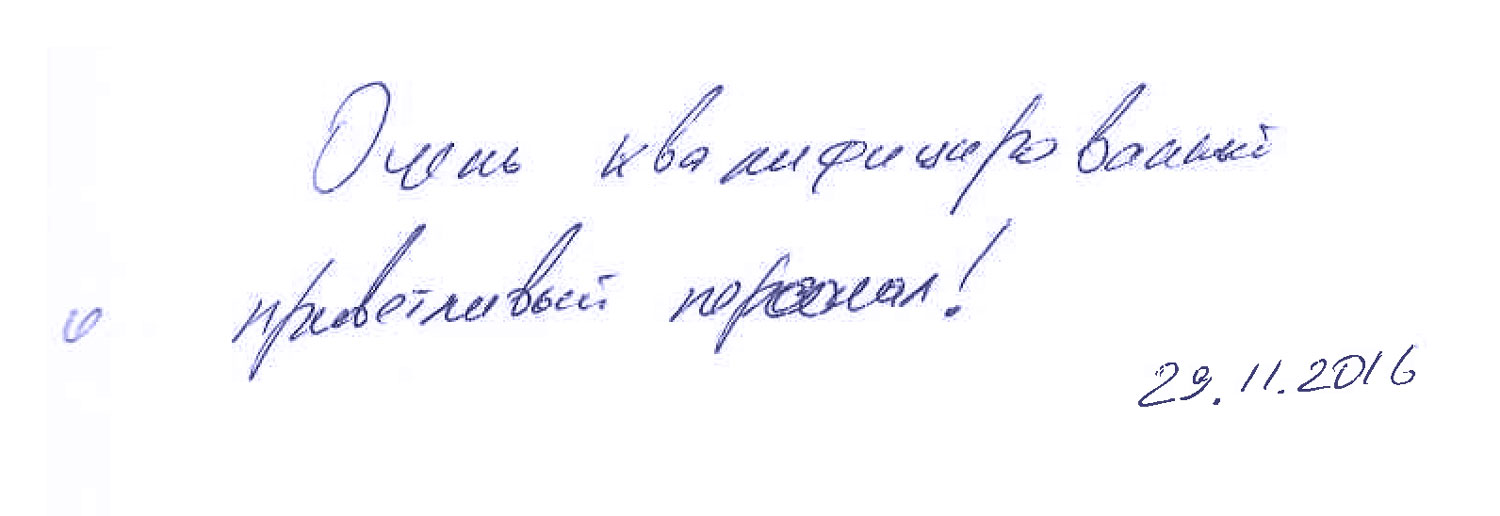 Очень квалифицированный
и приветливый персонал!
29.11.2016